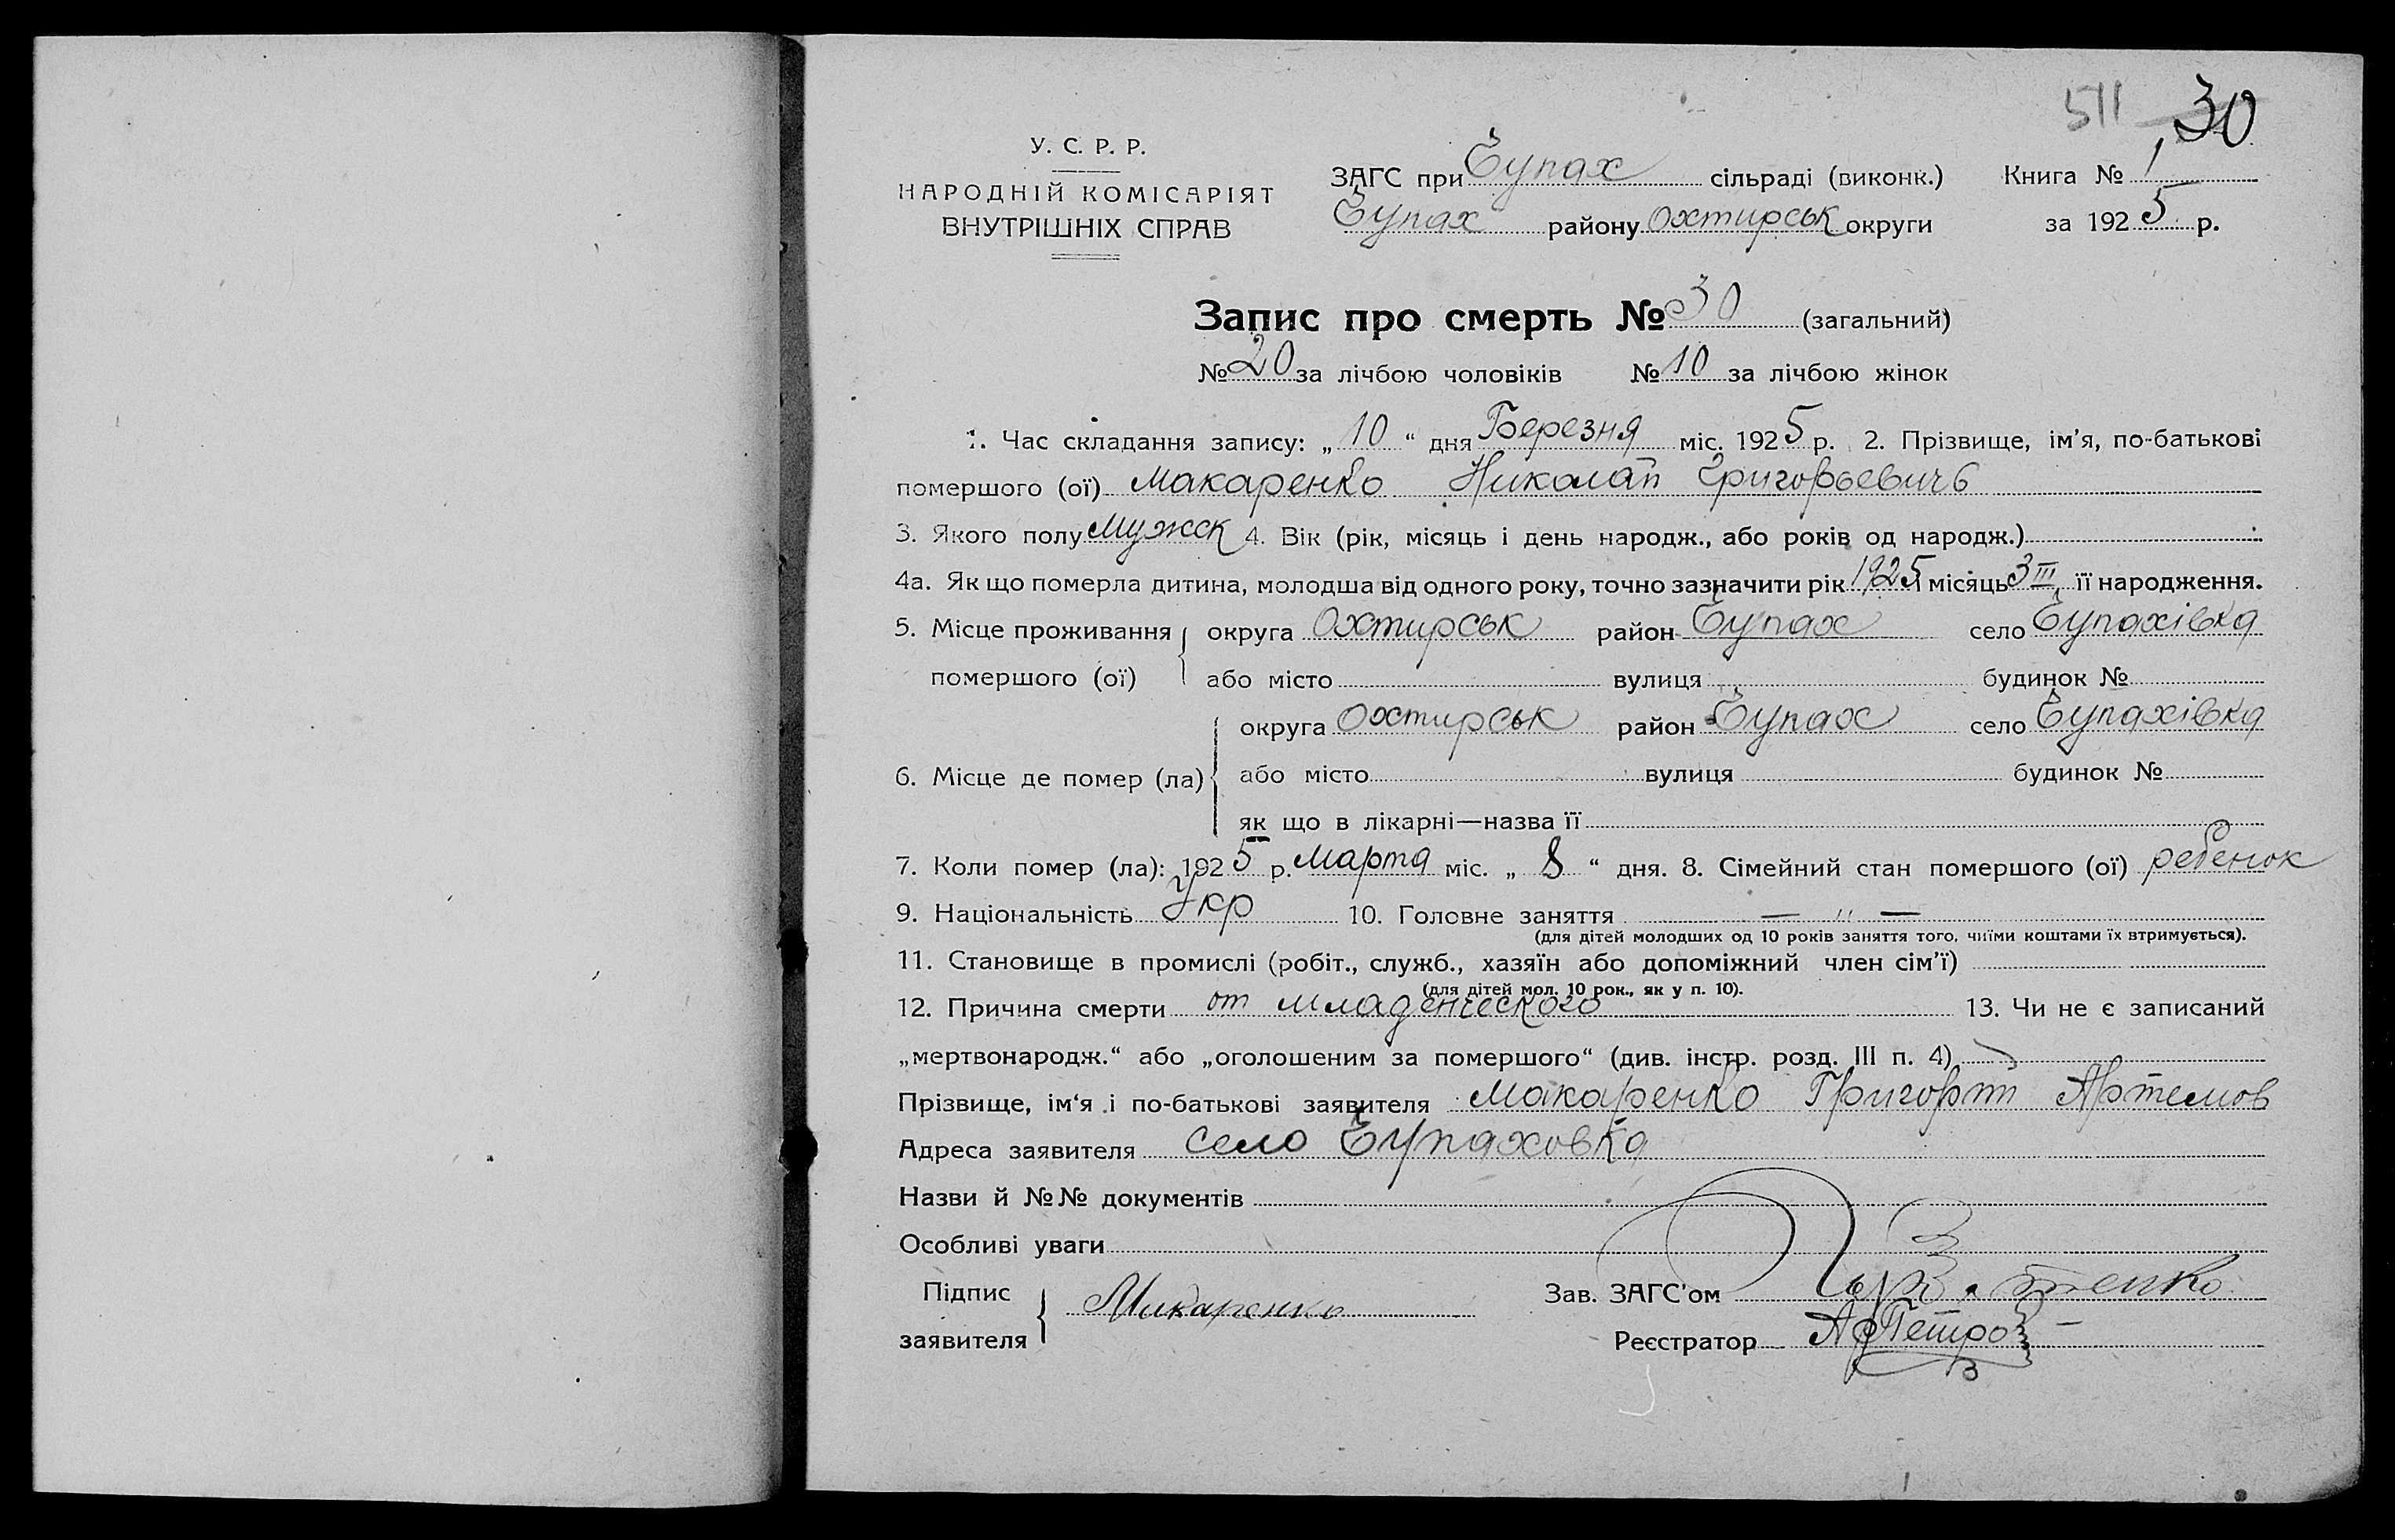 511 30
У. С. Р. Р.
НАРОДНІЙ КОМІСАРІЯТ
ВНУТРІШНІХ СПРАВ
ЗАГС при Чупах сільраді (виконк.) Книга № 1
Чупах району Охтирськ округи за 1925 р.
Запис про смерть № 30 (загальний)
№ 20 за лічбою чоловіків № 10 за лічбою жінок
1. Час складання запису: „ 10 “ дня Березня міс. 1925 р. 2. Прізвище, ім’я, по-батькові
помершого (ої) Макаренко Николай Григорьевичь
3. Якого полу Мужск 4. Вік (рік, місяць і день народж., або років од народж.)
4а. Як що померла дитина, молодша від одного року, точно зазначити рік 1925 місяць 3 III її народження.
5. Місце проживання округа Охтирськ район Чупах село Чупахівка
помершого (ої) або місто вулиця будинок №
округа Охтирськ район Чупах село Чупахівка
6. Місце де помер (ла) або місто вулиця будинок №
як що в лікарні—назва її
7. Коли помер (ла): 1925 р. Марта міс. „ 8 “ дня. 8. Сімейний стан помершого (ої) ребенок
9. Національність Укр 10. Головне заняття — „ —
(для дітей молодших од 10 років заняття того, чиїми коштами їх втримується).
11. Становище в промислі (робіт., служб., хазяїн або допоміжний член сім’ї)
(для дітей мол. 10 рок., як у п. 10).
12. Причина смерти от младенческого 13. Чи не є записаний
„мертвонародж.“ або „оголошеним за помершого“ (див. інстр. розд. III п. 4)
Прізвище, ім‘я і по-батькові заявителя Макаренко Григорій Артемов
Адреса заявителя село Чупаховка
Назви й №№ документів
Особливі уваги
Підпис
заявителя Макаренко
Зав. ЗАГС’ом
Реєстратор АПетров